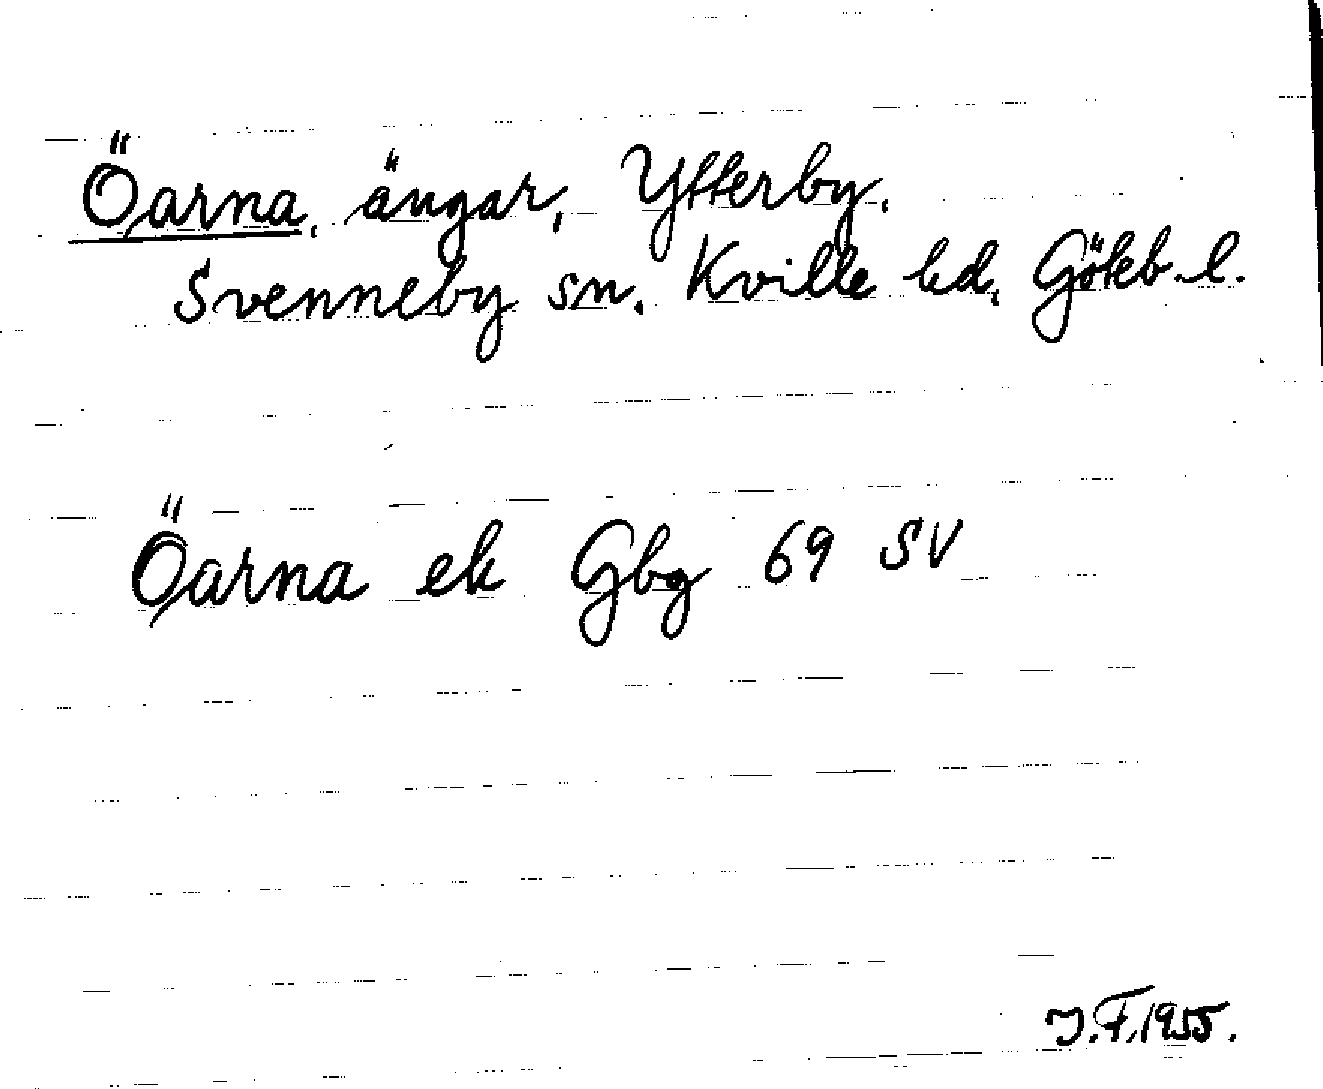 Öarna, ängar, Ytterby.
Svenneby sn. Kville hd. Göteb. l.
Öarna ek Gbg 69 SV
J.F. 1955.